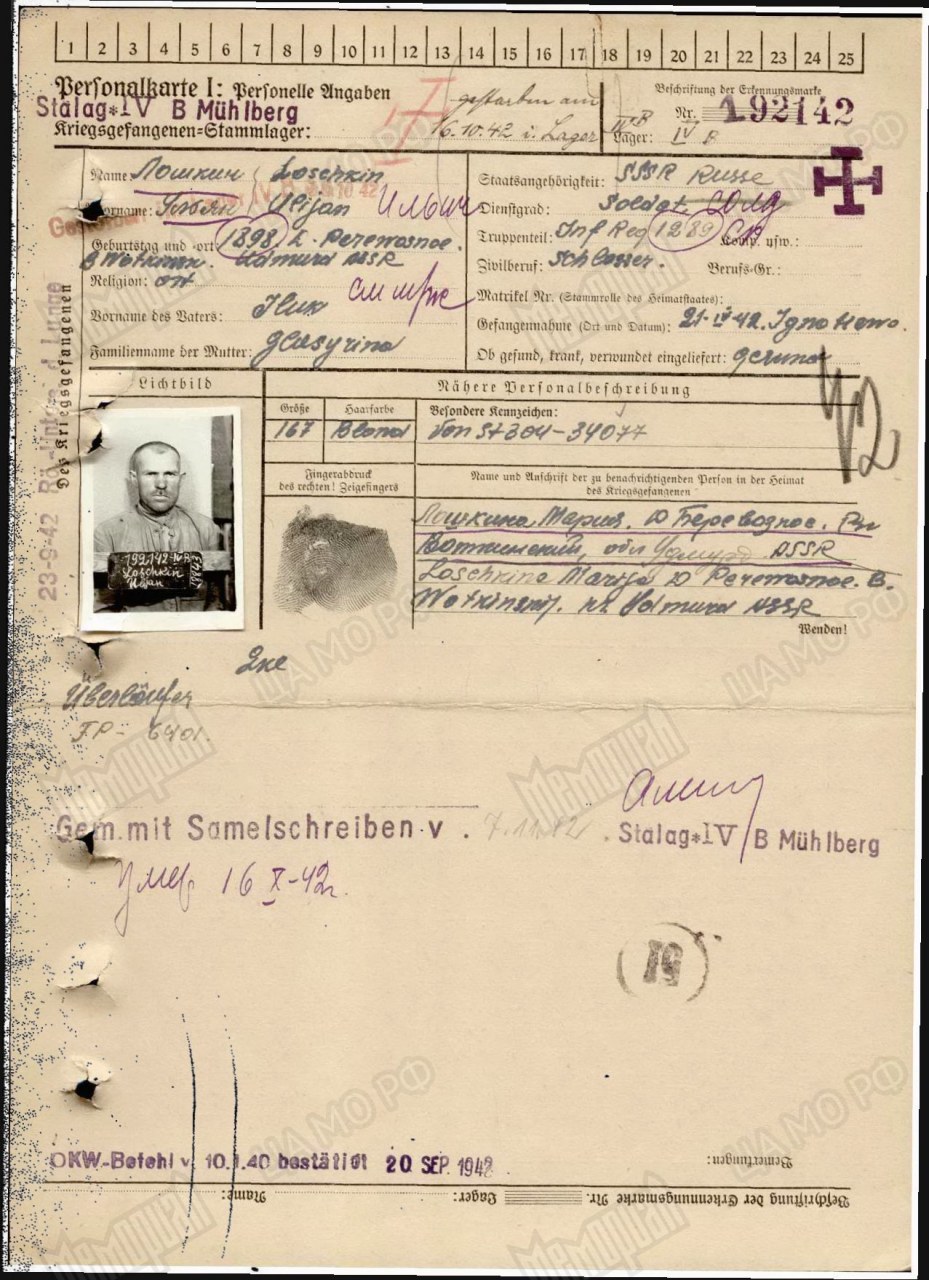 1 2 3 4 5 6 7 8 9 10 11 12 13 14 15 16 17 18 19 20 21 22 23 24 25
Personalkarte I: Personelle Angaben
Beschriftung der Erkennungsmarke
Stalag*IV B Mühlberg
gestorben am
Nr. 192142
Kriegsgefangenen=Stammlager:
16.10.42 i. Lager
Lager: IV B
Des Kriegsgefangenen
Name: Лошкин Loschkin
Staatsangehörigkeit: SSSR Russe
Vorname: Ulijan Ильич
Dienstgrad: Soldat
Geburtstag und =ort: 1898.
Truppenteil: Inf Reg 1289 Komp. usw.:
Perewosnoe.
Udmurd ASSR
Zivilberuf: Schlosser. Berufs-Gr.:
Religion: ort
Matrikel Nr. (Stammrolle des Heimatstaates):
Vorname des Vaters:
Gefangennahme (Ort und Datum): 21-IV-42.
Familienname der Mutter: Glasyrina
Ob gesund, krank, verwundet eingeliefert:
Lichtbild
Nähere Personalbeschreibung
Größe
Haarfarbe
Besondere Kennzeichen:
167
Blond
Von St 304-34077
Fingerabdruck
des rechten! Zeigefingers
Name und Anschrift der zu benachrichtigenden Person in der Heimat
des Kriegsgefangenen
Лошкина. Мария. Д Перевозное.
Воткинский, обл ASSR
Loschkina Marija D Perewosnoe.
Watkinskij. Udmurd ASSR
Wenden!
192142
Loschkin
23-9-42
Überläufer
FP- 6401.
Gem. mit Samelschreiben v. 7.11.42
Stalag*IV/B Mühlberg
Умер 16 X-42г.
51
OKW.-Befehl v. 10.1.40 bestätigt 20 SEP. 1942
Bemerkungen:
Beschriftung der Erkennungsmarke Nr. Lager: Name:
Мемориал
ЦАМО РФ